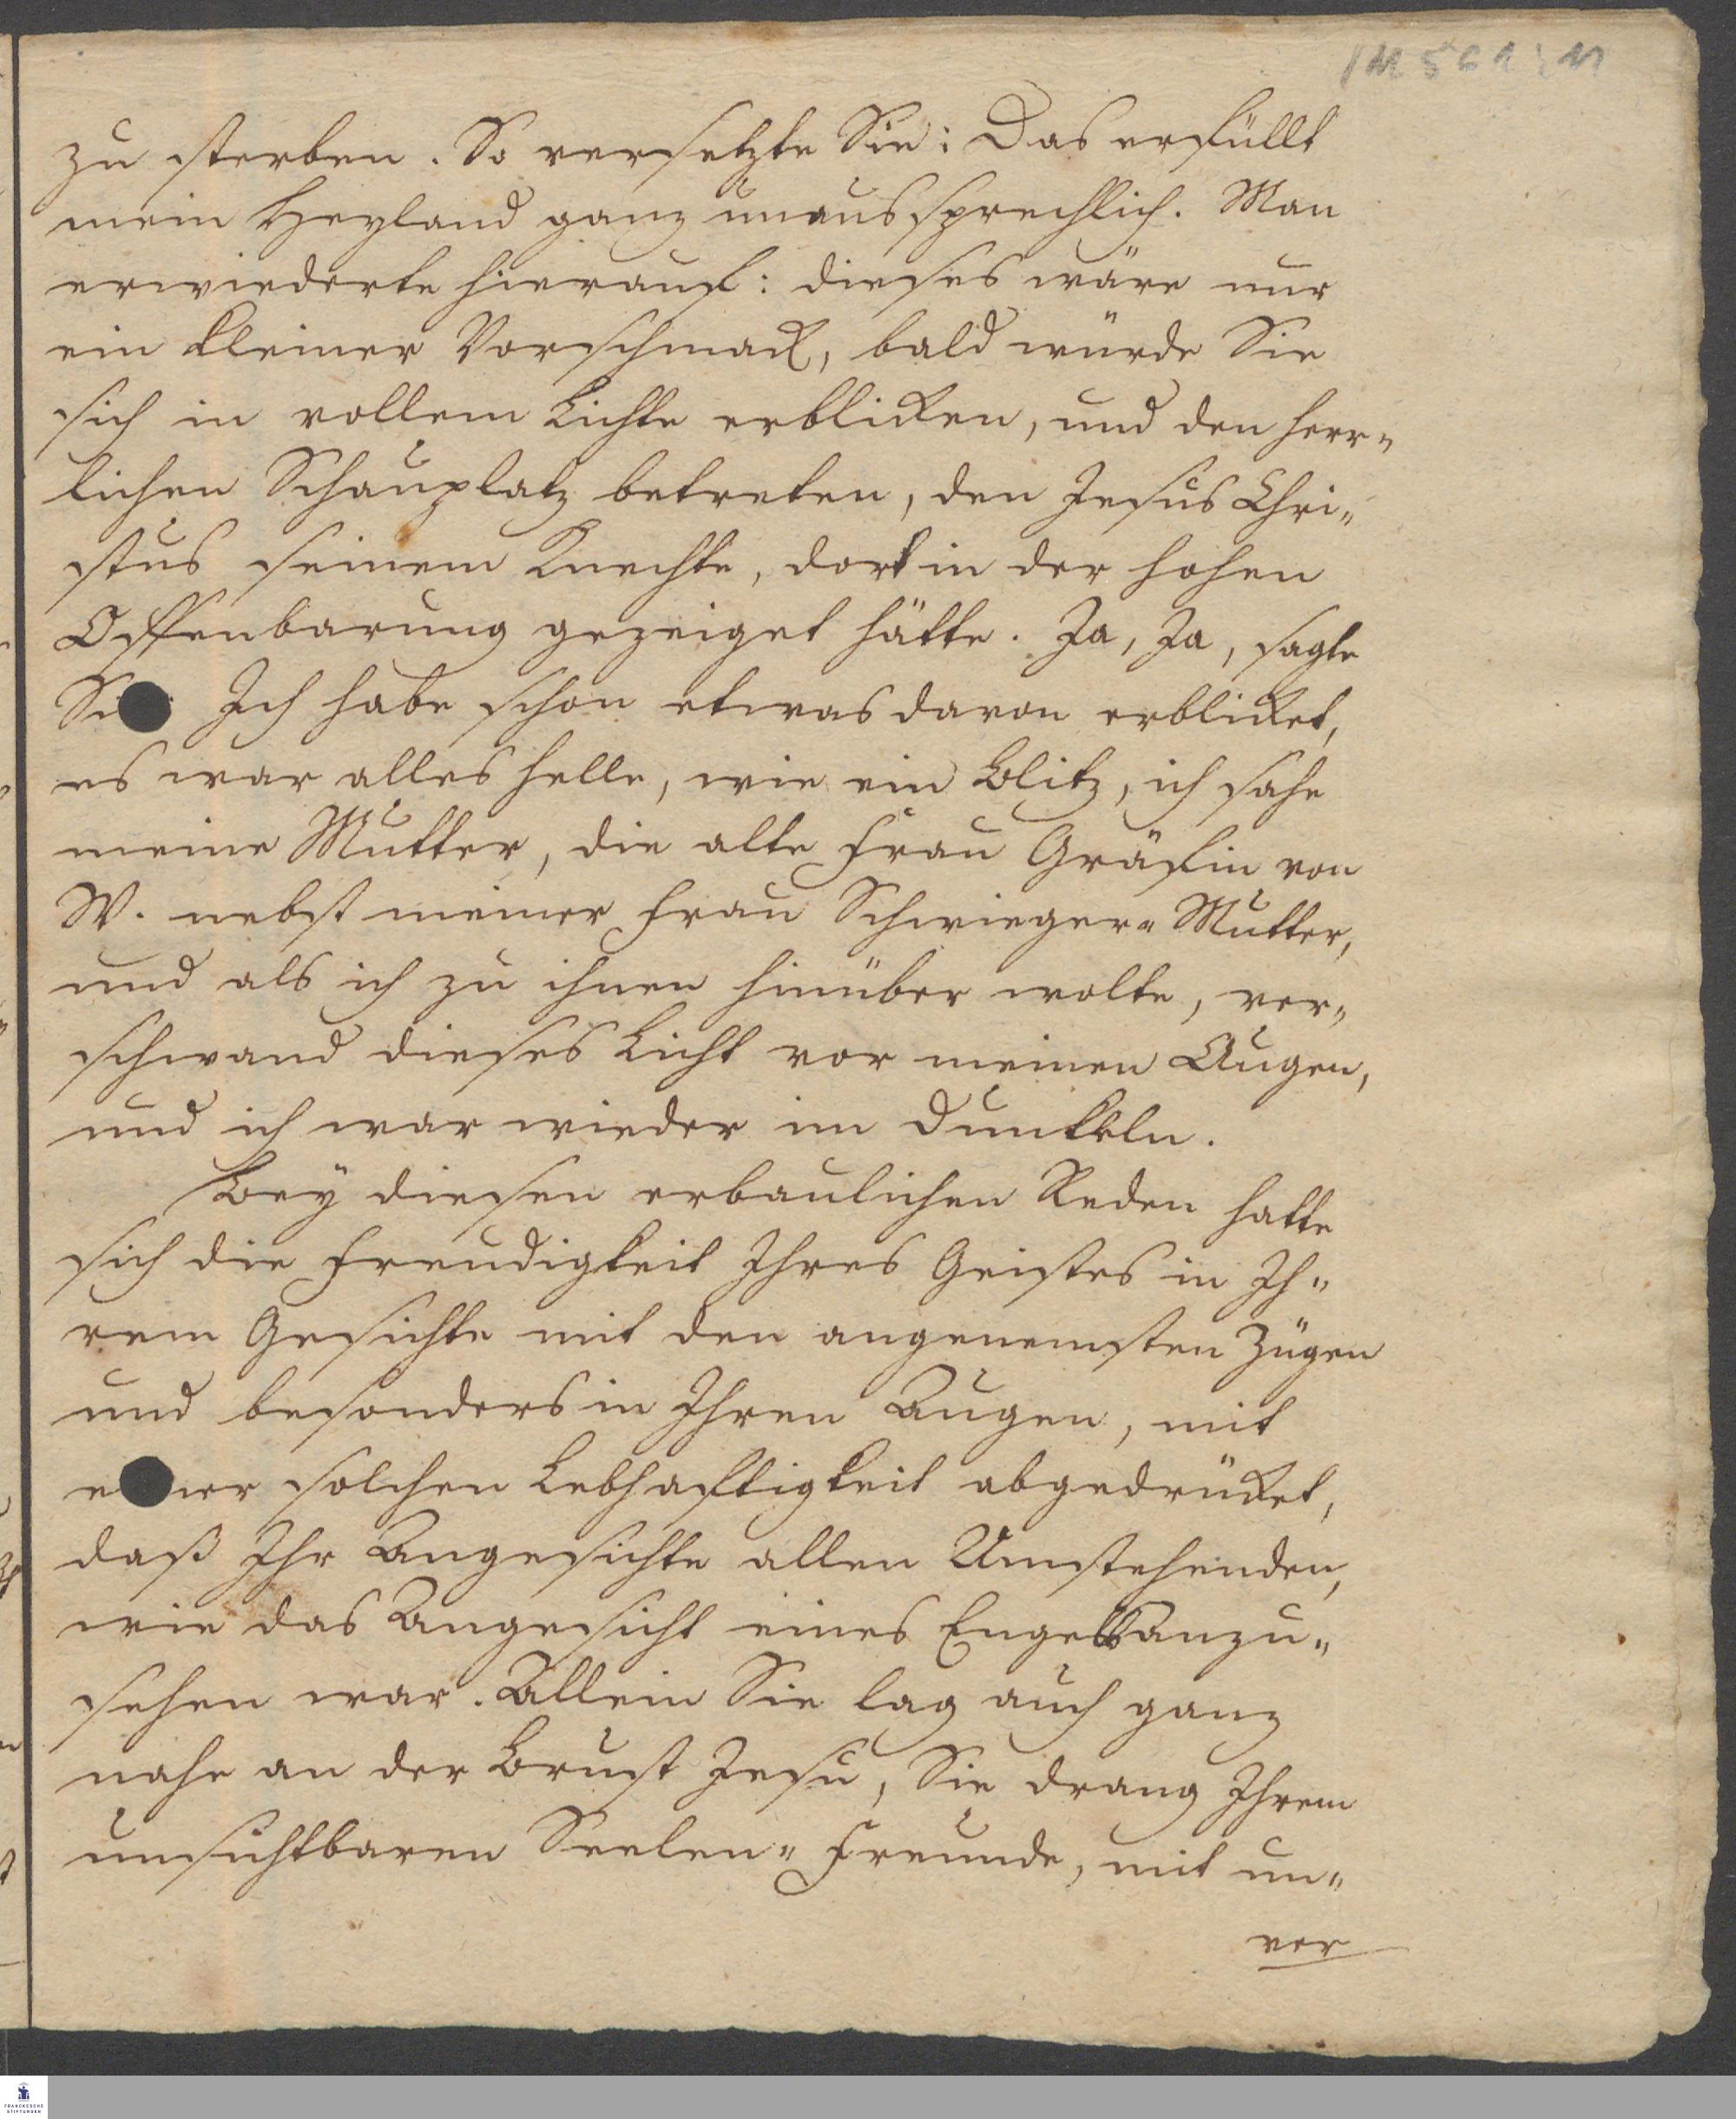 1M 5 G 1 : 11
zu sterben. So versetzte Sie: Das erfüllt
mein Heyland ganz unaussprechlich. Man
erwiederte hierauf: dieses wäre nur
ein kleiner Vorschmack, bald würde Sie
sich in vollem Lichte erblicken, und den herr„
lichen Schauplatz betreten, den Jesus Chri„
stus seinem Knechte, dort in der hohen
Offenbarung gezeiget hätte. Ja, Ja, sagte
Si Ich habe schon etwas davon erblicket,
es war alles helle, wie ein Blitz, ich sahe
meine Mutter, die alte Frau Gräfin von
W. nebst meiner Frau Schwieger„Mutter,
und als ich zu ihnen hinüber wolte, ver„
schwand dieses Licht vor meinen Augen,
und ich war wieder im Dunkeln.
Bey diesen erbaulichen Reden hatte
sich die Freudigkeit Ihres Geistes in Ih„
rem Gesichte mit den angenemsten Zügen
und besonders in Ihren Augen, mit
e ner solchen Lebhaftigkeit abgedrücket,
daß Ihr Angesichte allen Umstehenden,
wie das Angesicht eines Engels anzu„
sehen war. Allein Sie lag auch ganz
nahe an der Brust Jesu, Sie drang Ihrem
unsichtbaren Seelen„Freunde, mit un„
ver
FRANCKESCHE
STIFTUNGEN